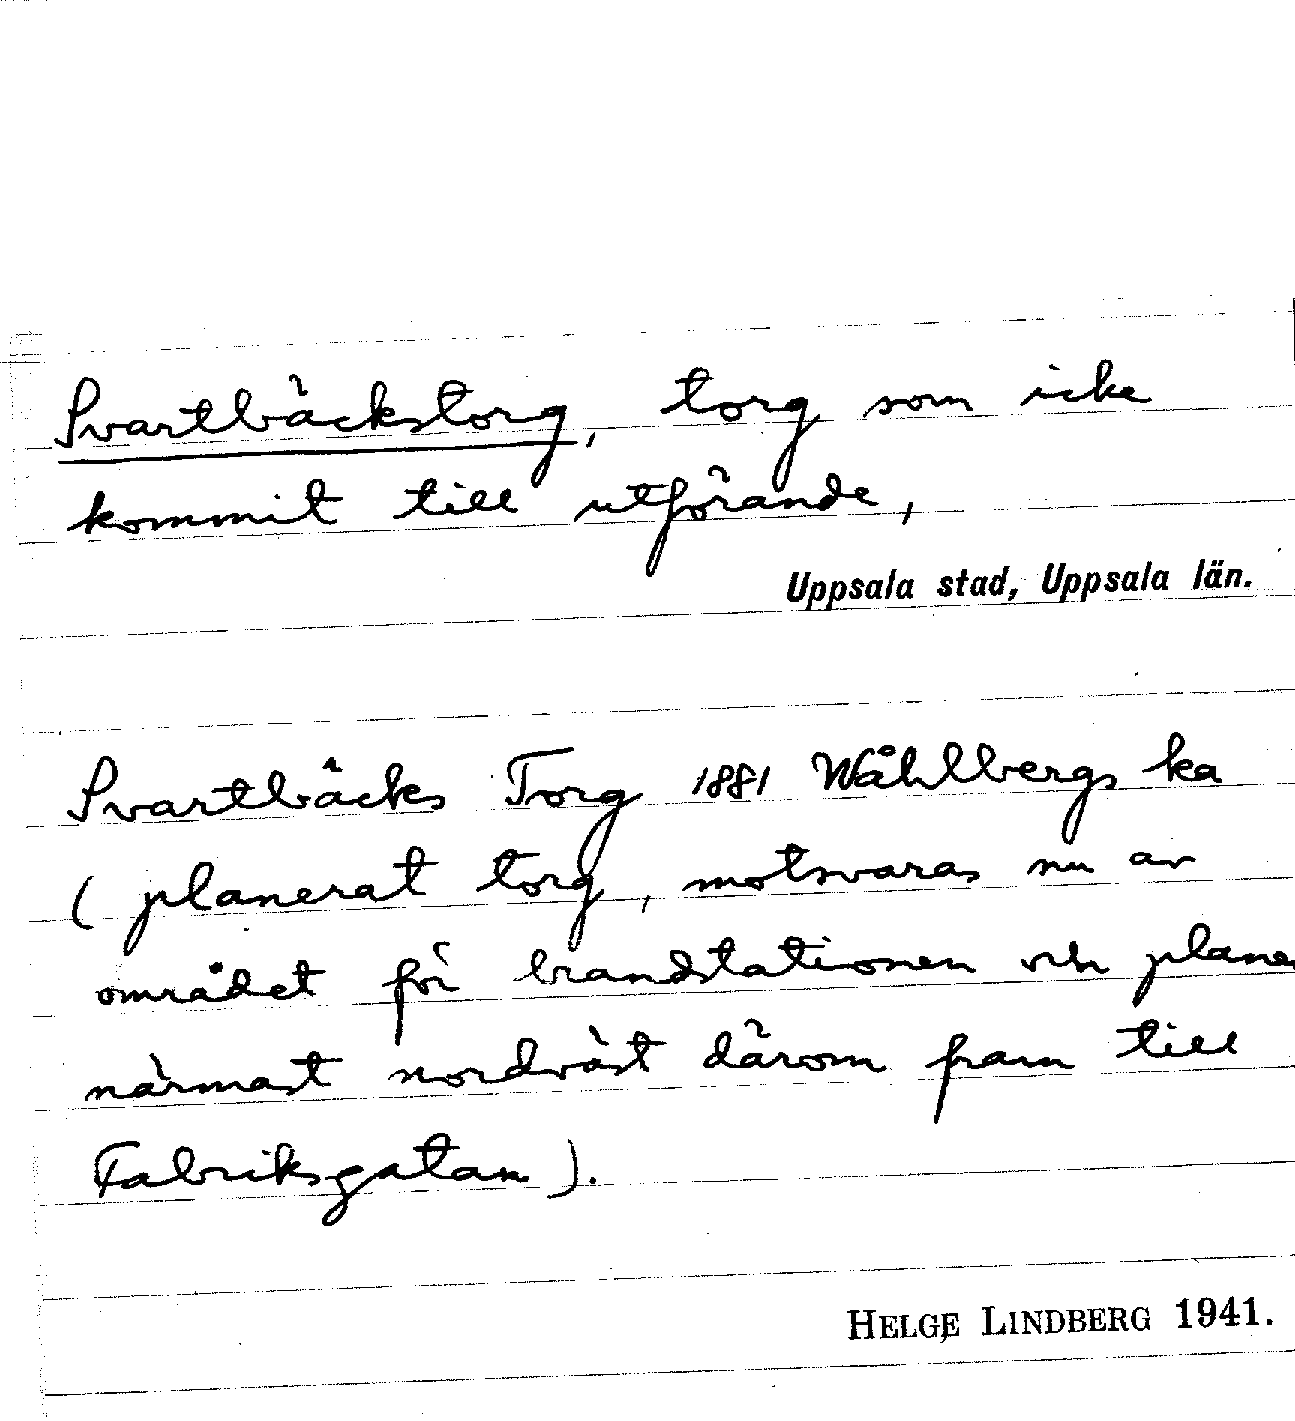 Svartbäckstorg, torg som icke
kommit till utförande,
Uppsala stad, Uppsala län.
Svartbäcks Torg 1881 Wåhlbergs ka
( planerat torg, motsvaras nu av
området för brandstationen och plane
närmast nordväst därom fram till
Fabriksgatan ).
HELGE LINDBERG 1941.